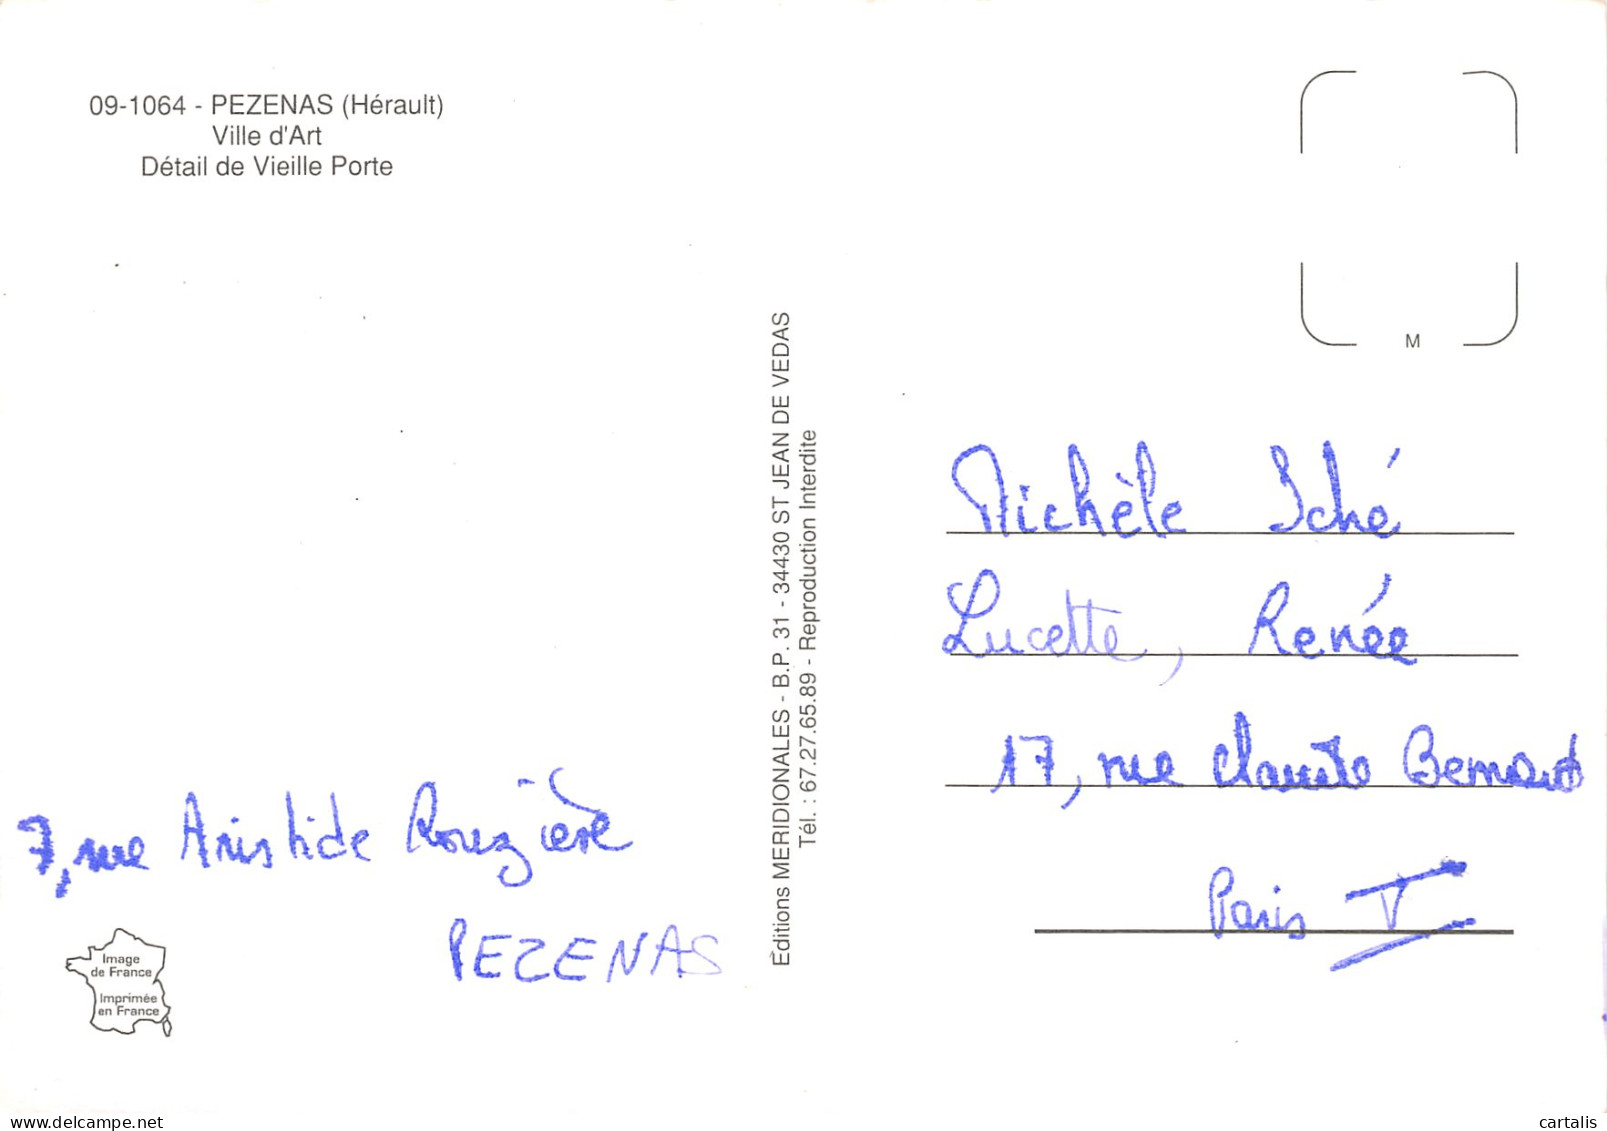 09-1064 - PEZENAS (Hérault)
Ville d'Art
Détail de Vieille Porte
7, rue Aristide Rouzière
PEZENAS
Image
de France
Imprimée
en France
Editions MERIDIONALES - B.P. 31 - 34430 ST JEAN DE VEDAS
Tél. : 67.27.65.89 - Reproduction Interdite
M
Michèle Iché
Lucette, Renée
17, rue Claude Bernard
Paris V
delcampe.net
cartalis